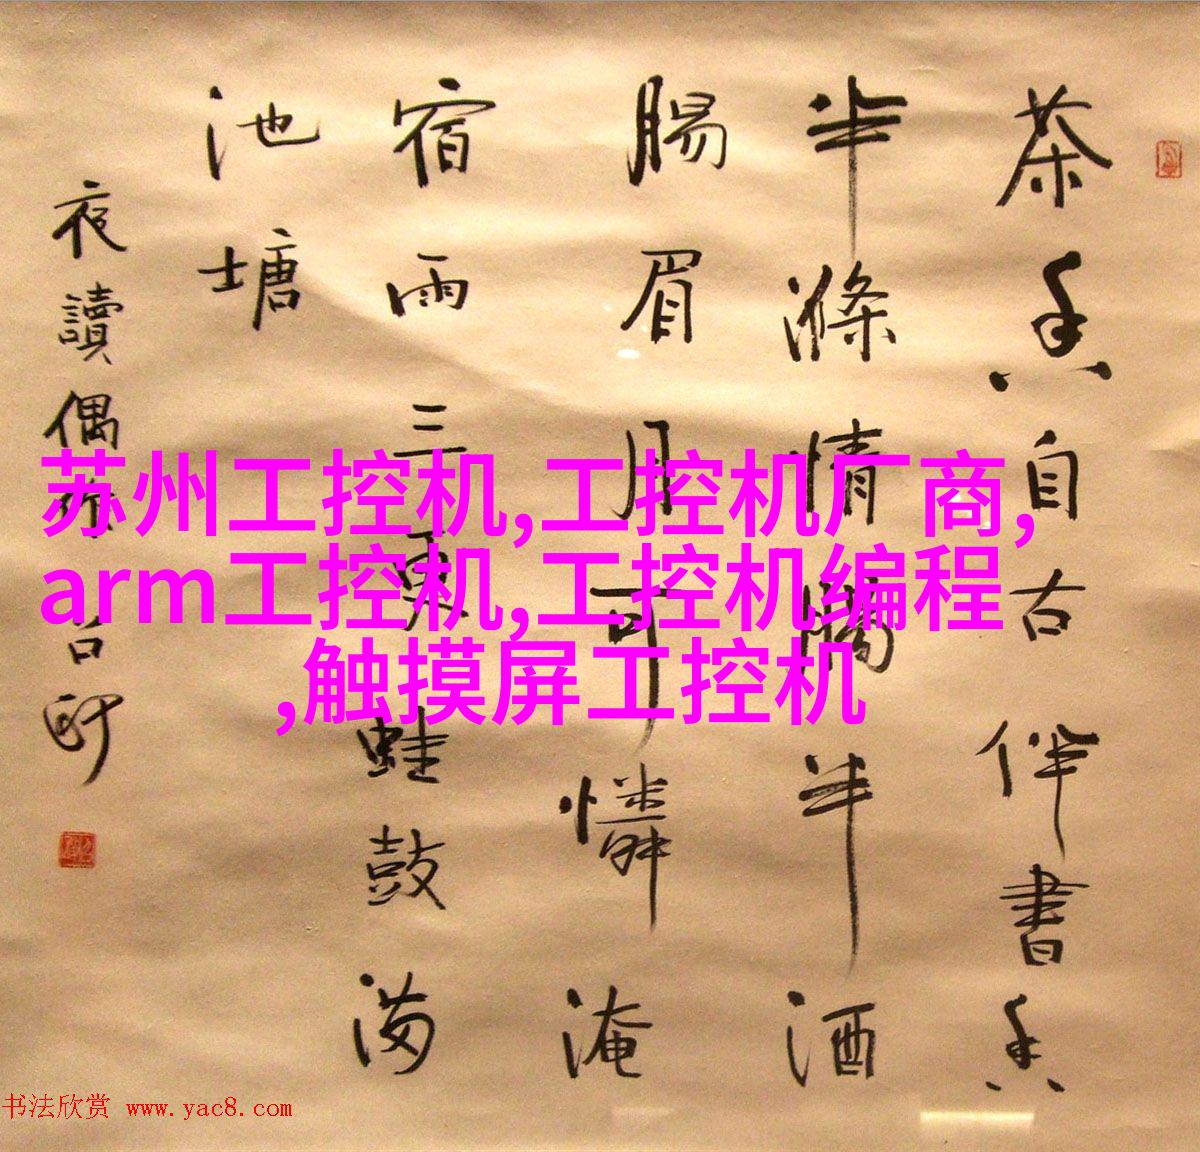 茶香自古伴書香
半滌情半酒
腸眉月可憐淹
宿雨三更蛙鼓满
池塘
夜讀偶作
苏州工控机,工控机厂商,
arm工控机,工控机编程
,触摸屏工控机
书法欣赏 www.yac8.com